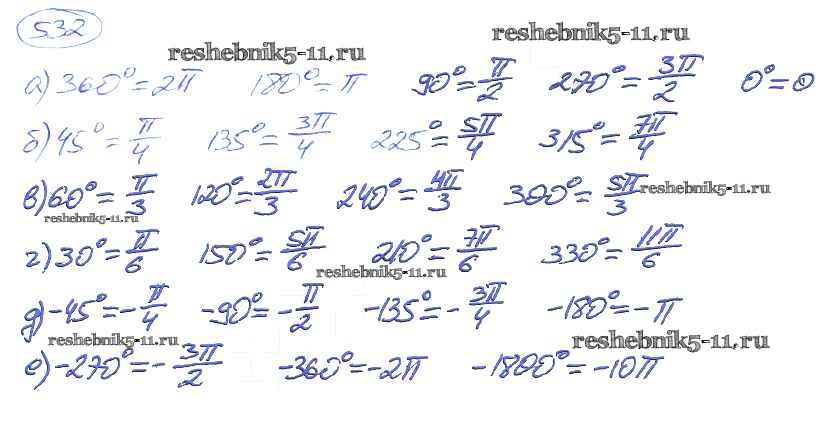 532
reshebnik5-11.ru reshebnik5-11.ru
а) 360° = 2π 180° = π 90° = π/2 270° = 3π/2 0° = 0
б) 45° = π/4 135° = 3π/4 225° = 5π/4 315° = 7π/4
в) 60° = π/3 120° = 2π/3 240° = 4π/3 300° = 5π/3 reshebnik5-11.ru
reshebnik5-11.ru
г) 30° = π/6 150° = 5π/6 210° = 7π/6 330° = 11π/6
reshebnik5-11.ru
д) -45° = -π/4 -90° = -π/2 -135° = -3π/4 -180° = -π
reshebnik5-11.ru reshebnik5-11.ru
е) -270° = -3π/2 -360° = -2π -1800° = -10π